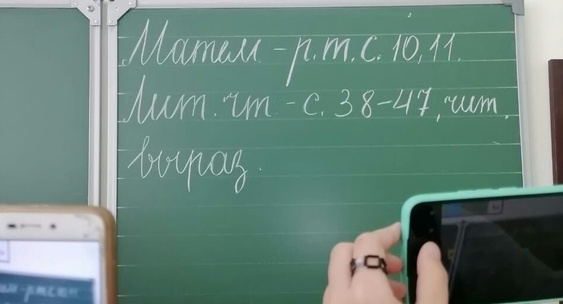 Матем - р.т.с. 10, 11.
Лит. чт. - с. 38-47, чит.
выраз.